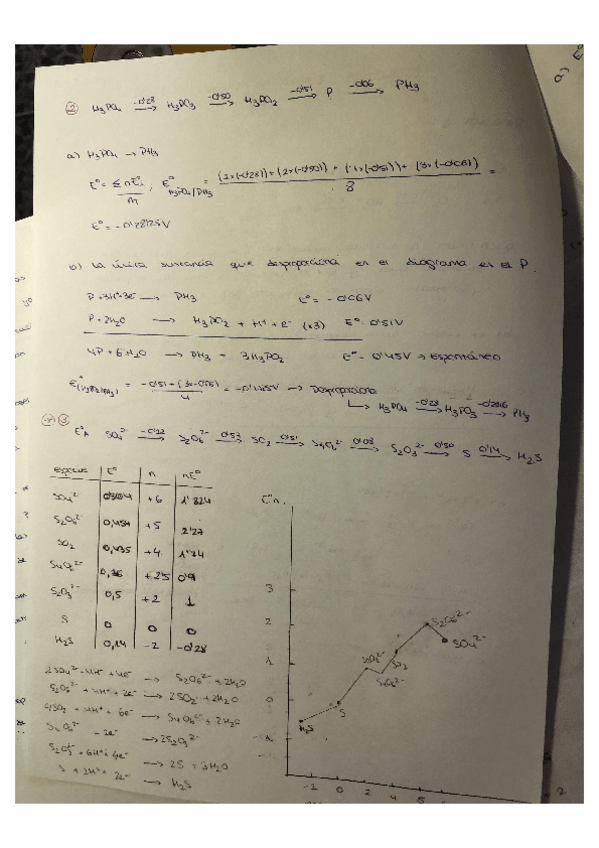 ② H₃PO₄ —-0'28→ H₃PO₃ —-0'50→ H₃PO₂ —-0'51→ P —-0'06→ PH₃
a) H₃PO₄ → PH₃
E° = Σ nE°i / m ; E° H₃PO₄/PH₃ = (2x(-0'28)) + (2x(-0'50)) + (1x(-0'51)) + (3x(-0'06)) / 8 =
E° = -0'28125 V
b) La única sustancia que desproporciona en el diagrama es el P.
P + 3H⁺ 3e⁻ → PH₃ E° = -0'06V
P + 2H₂O → H₃PO₂ + H⁺ + e⁻ (x3) E° 0'51V
4P + 6H₂O → PH₃ + 3H₃PO₂ E° = 0'45V → Espontáneo
= -0'51 + (3x-0'06) / 4 = → Desproporciona
↳ H₃PO₄ —-0'28→ H₃PO₃ → PH₃
③ E°A SO₄²⁻ —-0'22→ S₂O₆²⁻ —0'57→ SO₂ —0'51→ S₄O₆²⁻ —0'08→ S₂O₃²⁻ —0'50→ S —0'14→ H₂S
especie E° n nE°
SO₄²⁻ +6 1'824
S₂O₆²⁻ 0,454 +5 2'27
SO₂ 0,435 +4 1'74
S₄O₆²⁻ 0,36 +2'5 0'9
S₂O₃²⁻ 0,5 +2 1
S 0 0 0
H₂S 0,14 -2 -0'28
2SO₄²⁻ + 4H⁺ + 4e⁻ → S₂O₆²⁻ + 2H₂O
S₂O₆²⁻ + 4H⁺ + 2e⁻ → 2SO₂ + 2H₂O
4SO₂ + 4H⁺ + 6e⁻ → S₄O₆²⁻ + 2H₂O
S₄O₆²⁻ 2e⁻ → 2S₂O₃²⁻
S₂O₃²⁻ + 6H⁺ + 4e⁻ → 2S + 3H₂O
S + 2H⁺ + 2e⁻ → H₂S
E°n
3
2
1
0
-1
H₂S
S
S₂O₃²⁻
S₄O₆²⁻
SO₂
S₂O₆²⁻
SO₄²⁻
-1 0 2 4 5